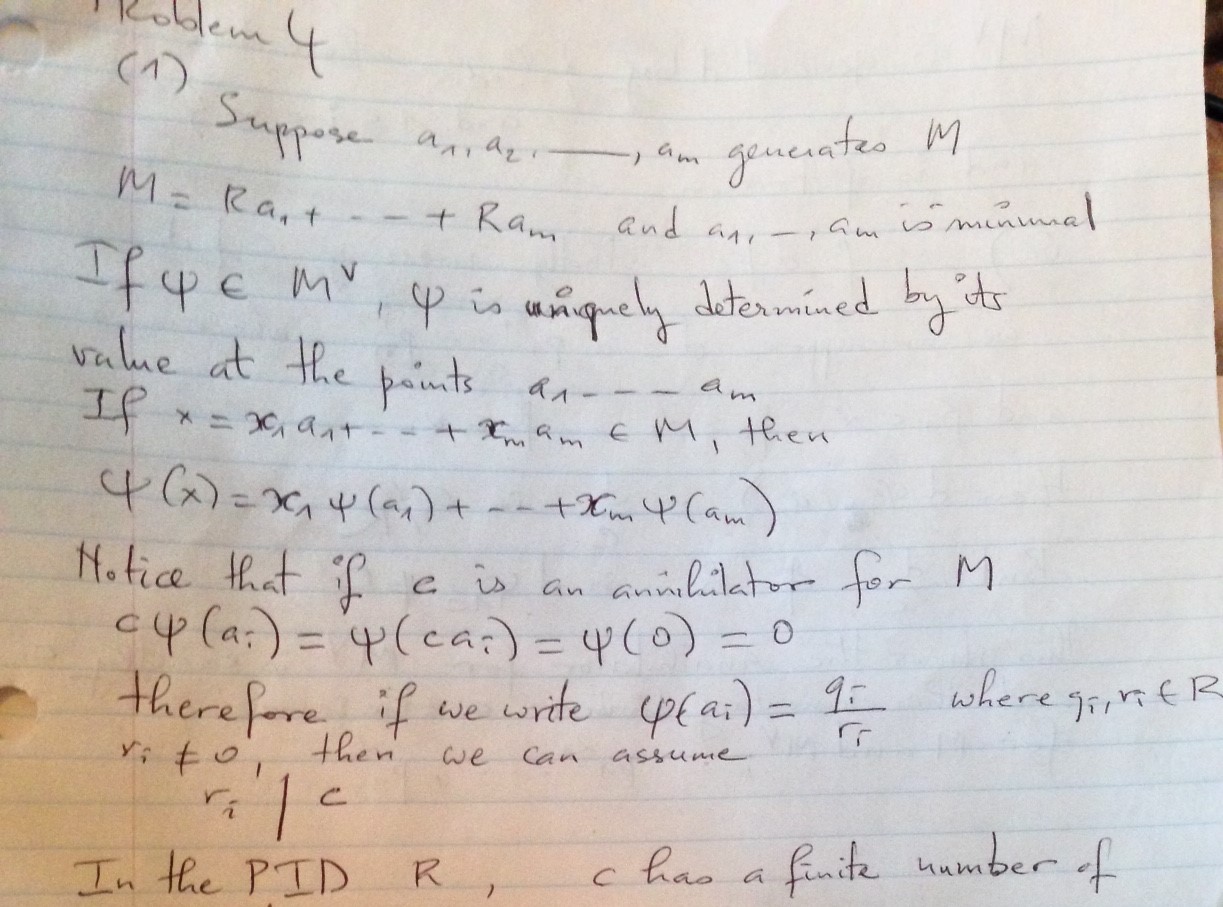 Problem 4
(1)
Suppose a₁, a₂, —, am generates M
M = Ra₁ + - - - + Ram and a₁, —, am is minimal
If φ ∈ M^v, φ is uniquely determined by its
value at the points a₁ - - - am
If x = x₁a₁ + - - - + xm am ∈ M, then
φ(x) = x₁ φ(a₁) + - - - + xm φ(am)
Notice that if c is an annihilator for M
cφ(ai) = φ(cai) = φ(0) = 0
therefore if we write φ(ai) = qi/ri where qi, ri ∈ R
ri ≠ 0, then we can assume
ri | c
In the PID R, c has a finite number of